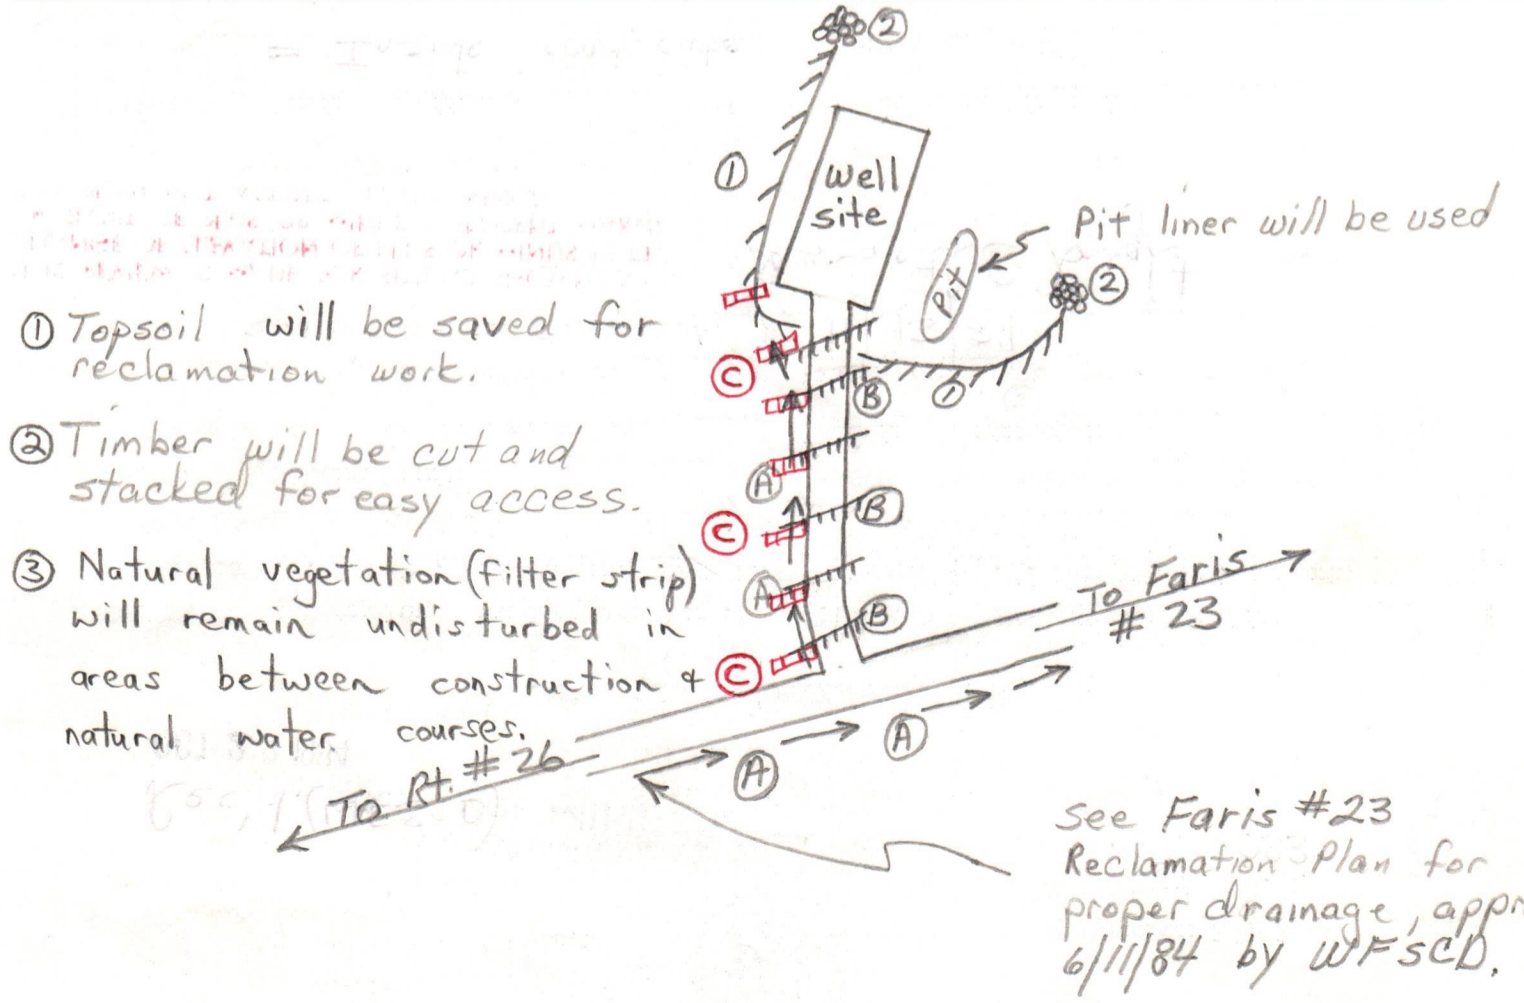 ②
①
well
site
Pit liner will be used
Pit
②
① Topsoil will be saved for
reclamation work.
C
B
①
② Timber will be cut and
stacked for easy access.
A
C
B
③ Natural vegetation (filter strip)
will remain undisturbed in
areas between construction &
natural water courses.
A
B
C
To Faris
# 23
A
A
To Rt. # 26
see Faris #23
Reclamation Plan for
proper drainage, appr
6/11/84 by WFSCD.